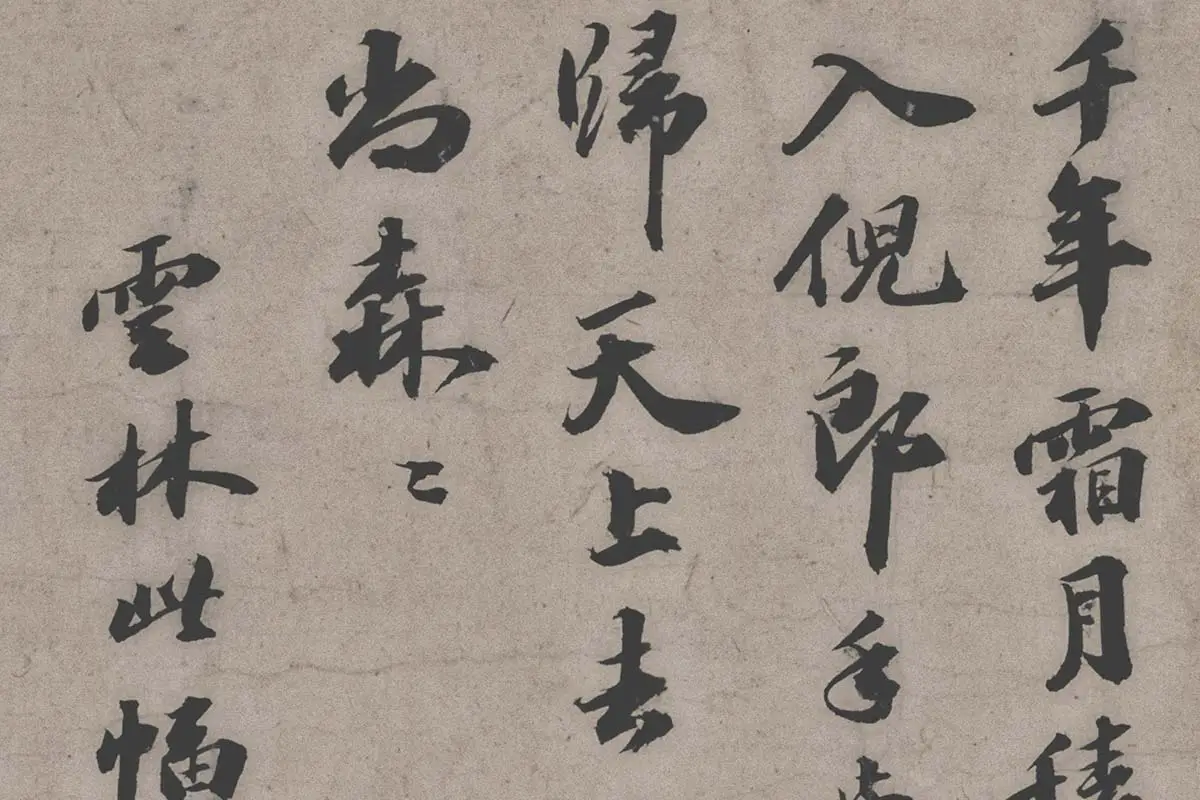 千年霜月積
入倪郎手
歸天上去
尚森〻
雲林此幅